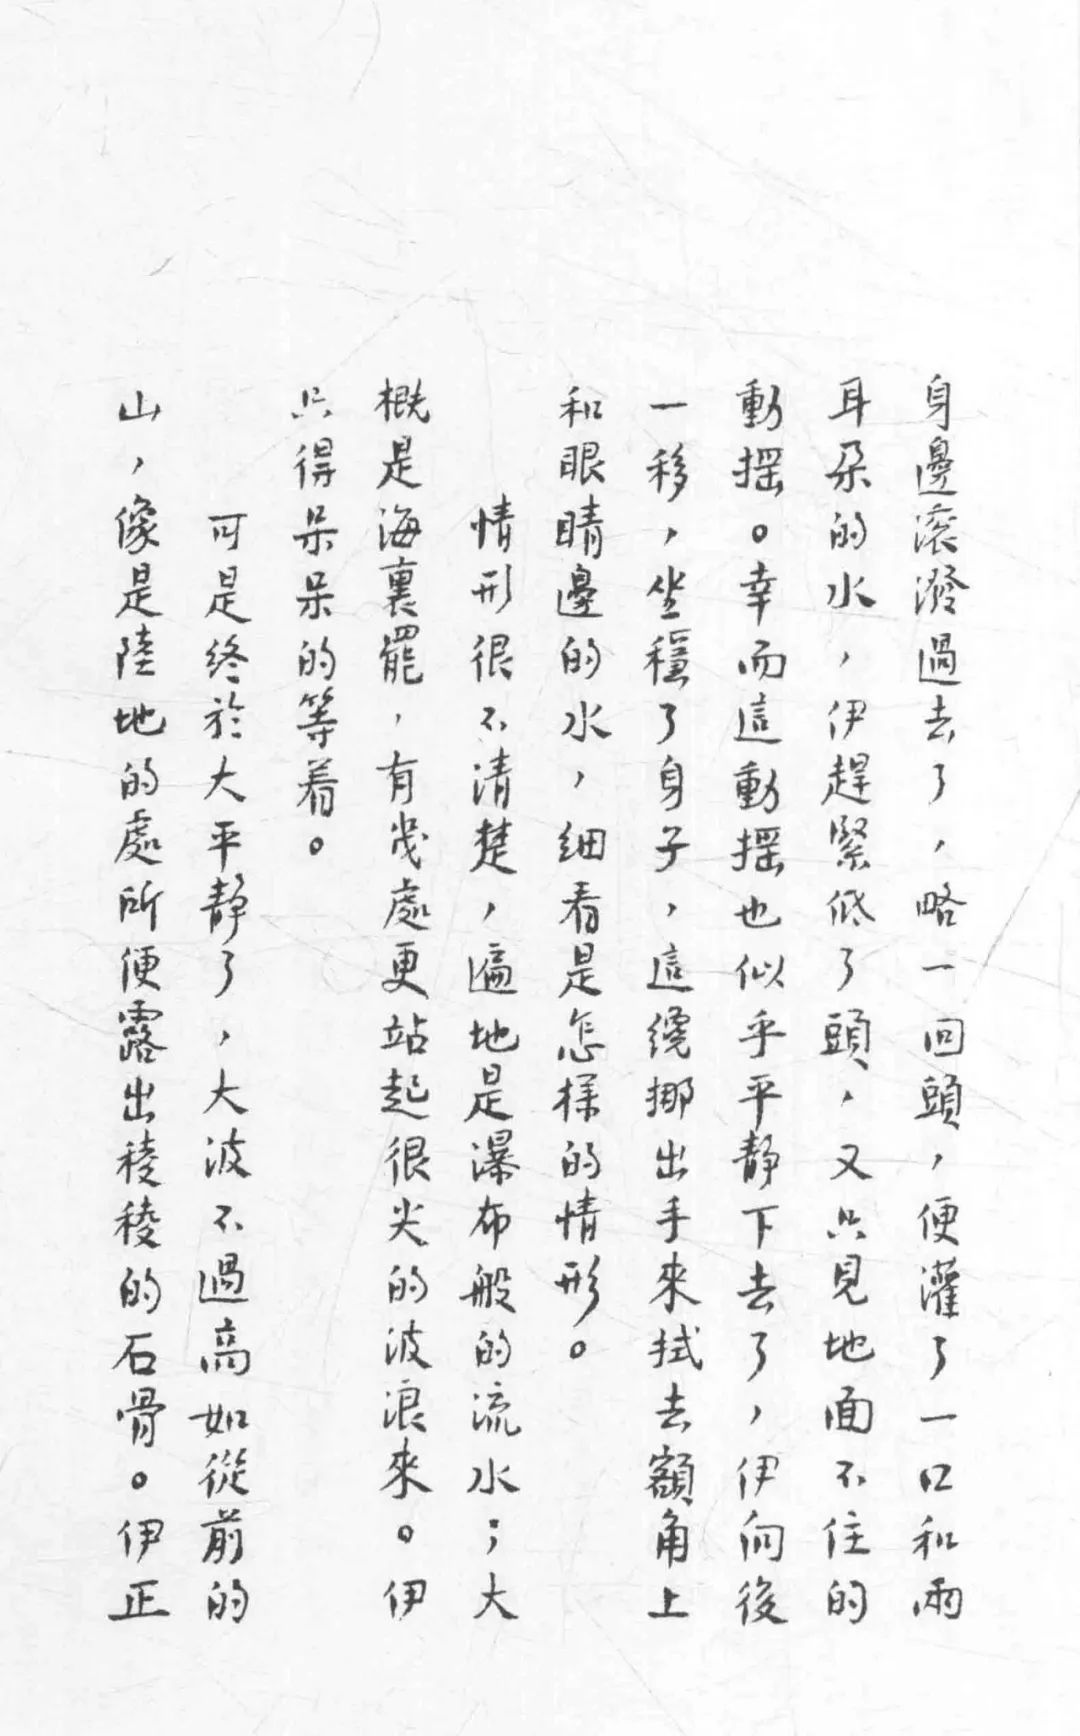 身邊滾潑過去了，略一回頭，便灌了一口和兩
耳朵的水，伊趕緊低了頭，又只見地面不住的
動摇。幸而這動摇也似乎平静下去了，伊向後
一移，坐穩了身子，這纔挪出手來拭去額角上
和眼睛邊的水，細看是怎样的情形。
情形很不清楚，遍地是瀑布般的流水；大
概是海裏罷，有幾處更站起很尖的波浪來。伊
只得呆呆的等着。
可是終於大平静了，大波不過高如從前的
山，像是陸地的處所便露出稜稜的石骨。伊正